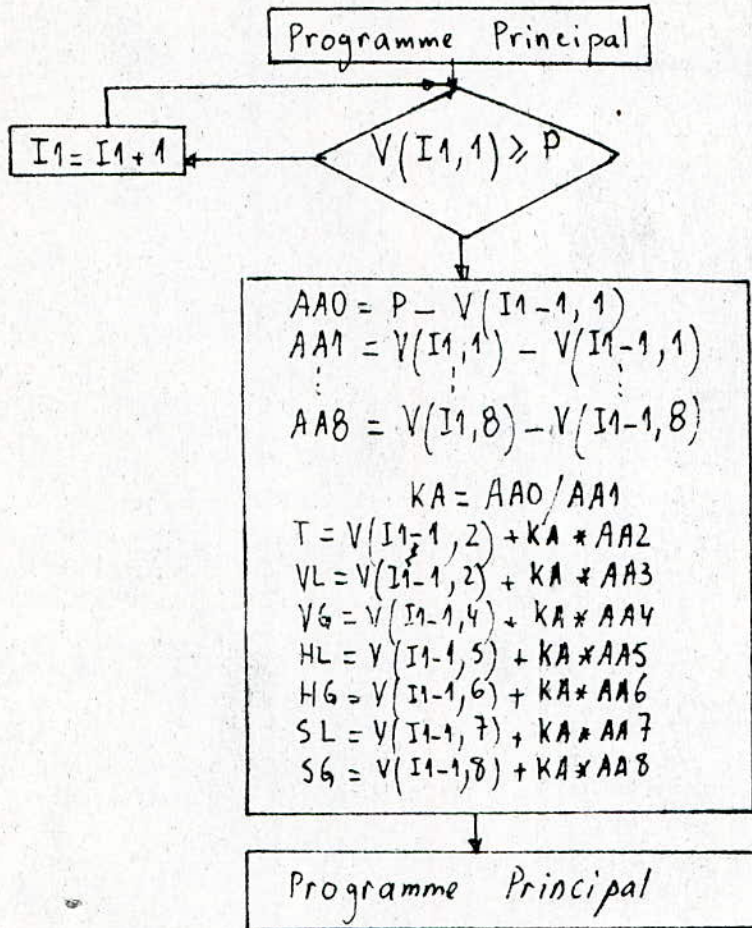 Programme Principal
I1 = I1 + 1
V(I1,1) ⩾ P
AA0 = P - V(I1-1, 1)
AA1 = V(I1,1) - V(I1-1, 1)
⋮ ⋮ ⋮
AA8 = V(I1,8) - V(I1-1, 8)
KA = AA0/AA1
T = V(I1-1, 2) + KA * AA2
VL = V(I1-1, 2) + KA * AA3
VG = V(I1-1, 4) + KA * AA4
HL = V(I1-1, 5) + KA * AA5
HG = V(I1-1, 6) + KA * AA6
SL = V(I1-1, 7) + KA * AA7
SG = V(I1-1,8) + KA * AA8
Programme Principal